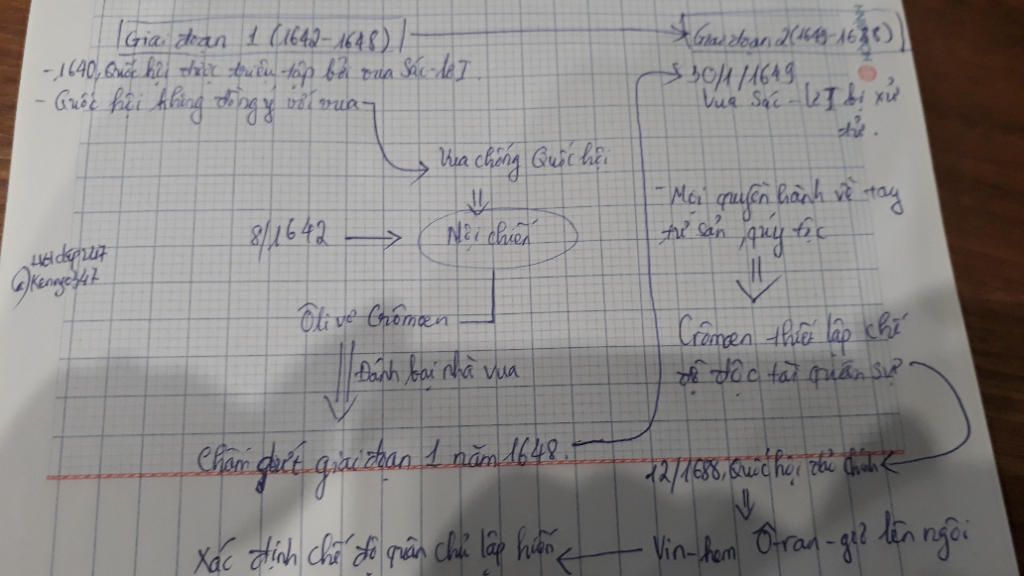 Giai đoạn 1 (1642-1648)
- 1640, Quốc hội được triệu tập bởi vua Sác-lơ I.
- Quốc hội không đồng ý với vua
Vua chống Quốc hội
8/1642
Nội chiến
Ôlivơ Crômoen
Đánh bại nhà vua
Chấm dứt giai đoạn 1 năm 1648.
Giai đoạn 2 (1649-1688)
30/1/1649
Vua Sác-lơ I bị xử
tử.
- Mọi quyền hành về tay
tư sản, quý tộc
Crômoen thiết lập chế
độ độc tài quân sự
12/1688, Quốc hội
Vin-hem Ô-ran-giơ lên ngôi
Xác định chế độ quân chủ lập hiến